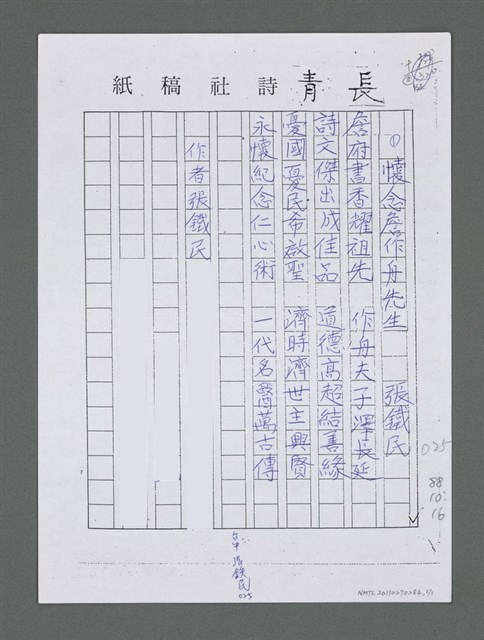 長青詩社稿紙
①懷念詹作舟先生 張鐵民
詹府書香耀祖先 作舟夫子澤長延
詩文傑出成佳品 道德高超結善緣
憂國憂民希啟聖 濟時濟世主興賢
永懷紀念仁心術 一代名醫萬古傳
作者張鐵民
025
88
10:
16
台中 張鉄民
025
NMTL20110270286,1/1